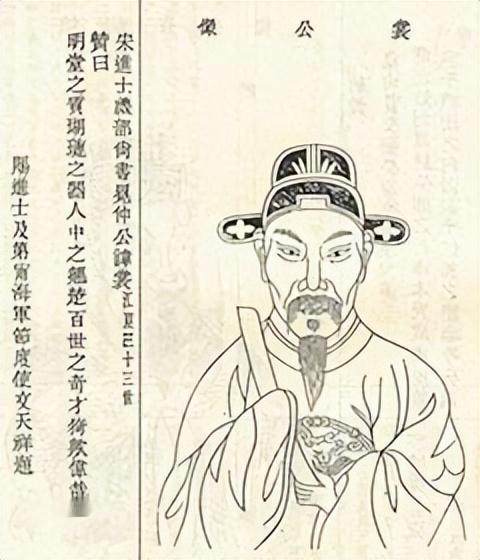 裳公像
宋進士禮部尚書冕仲公諱裳江夏十三世
贊曰
明堂之質瑚璉之器人中之翹楚百世之奇才猗歟偉
賜進士及第寧海軍節度使文天祥題